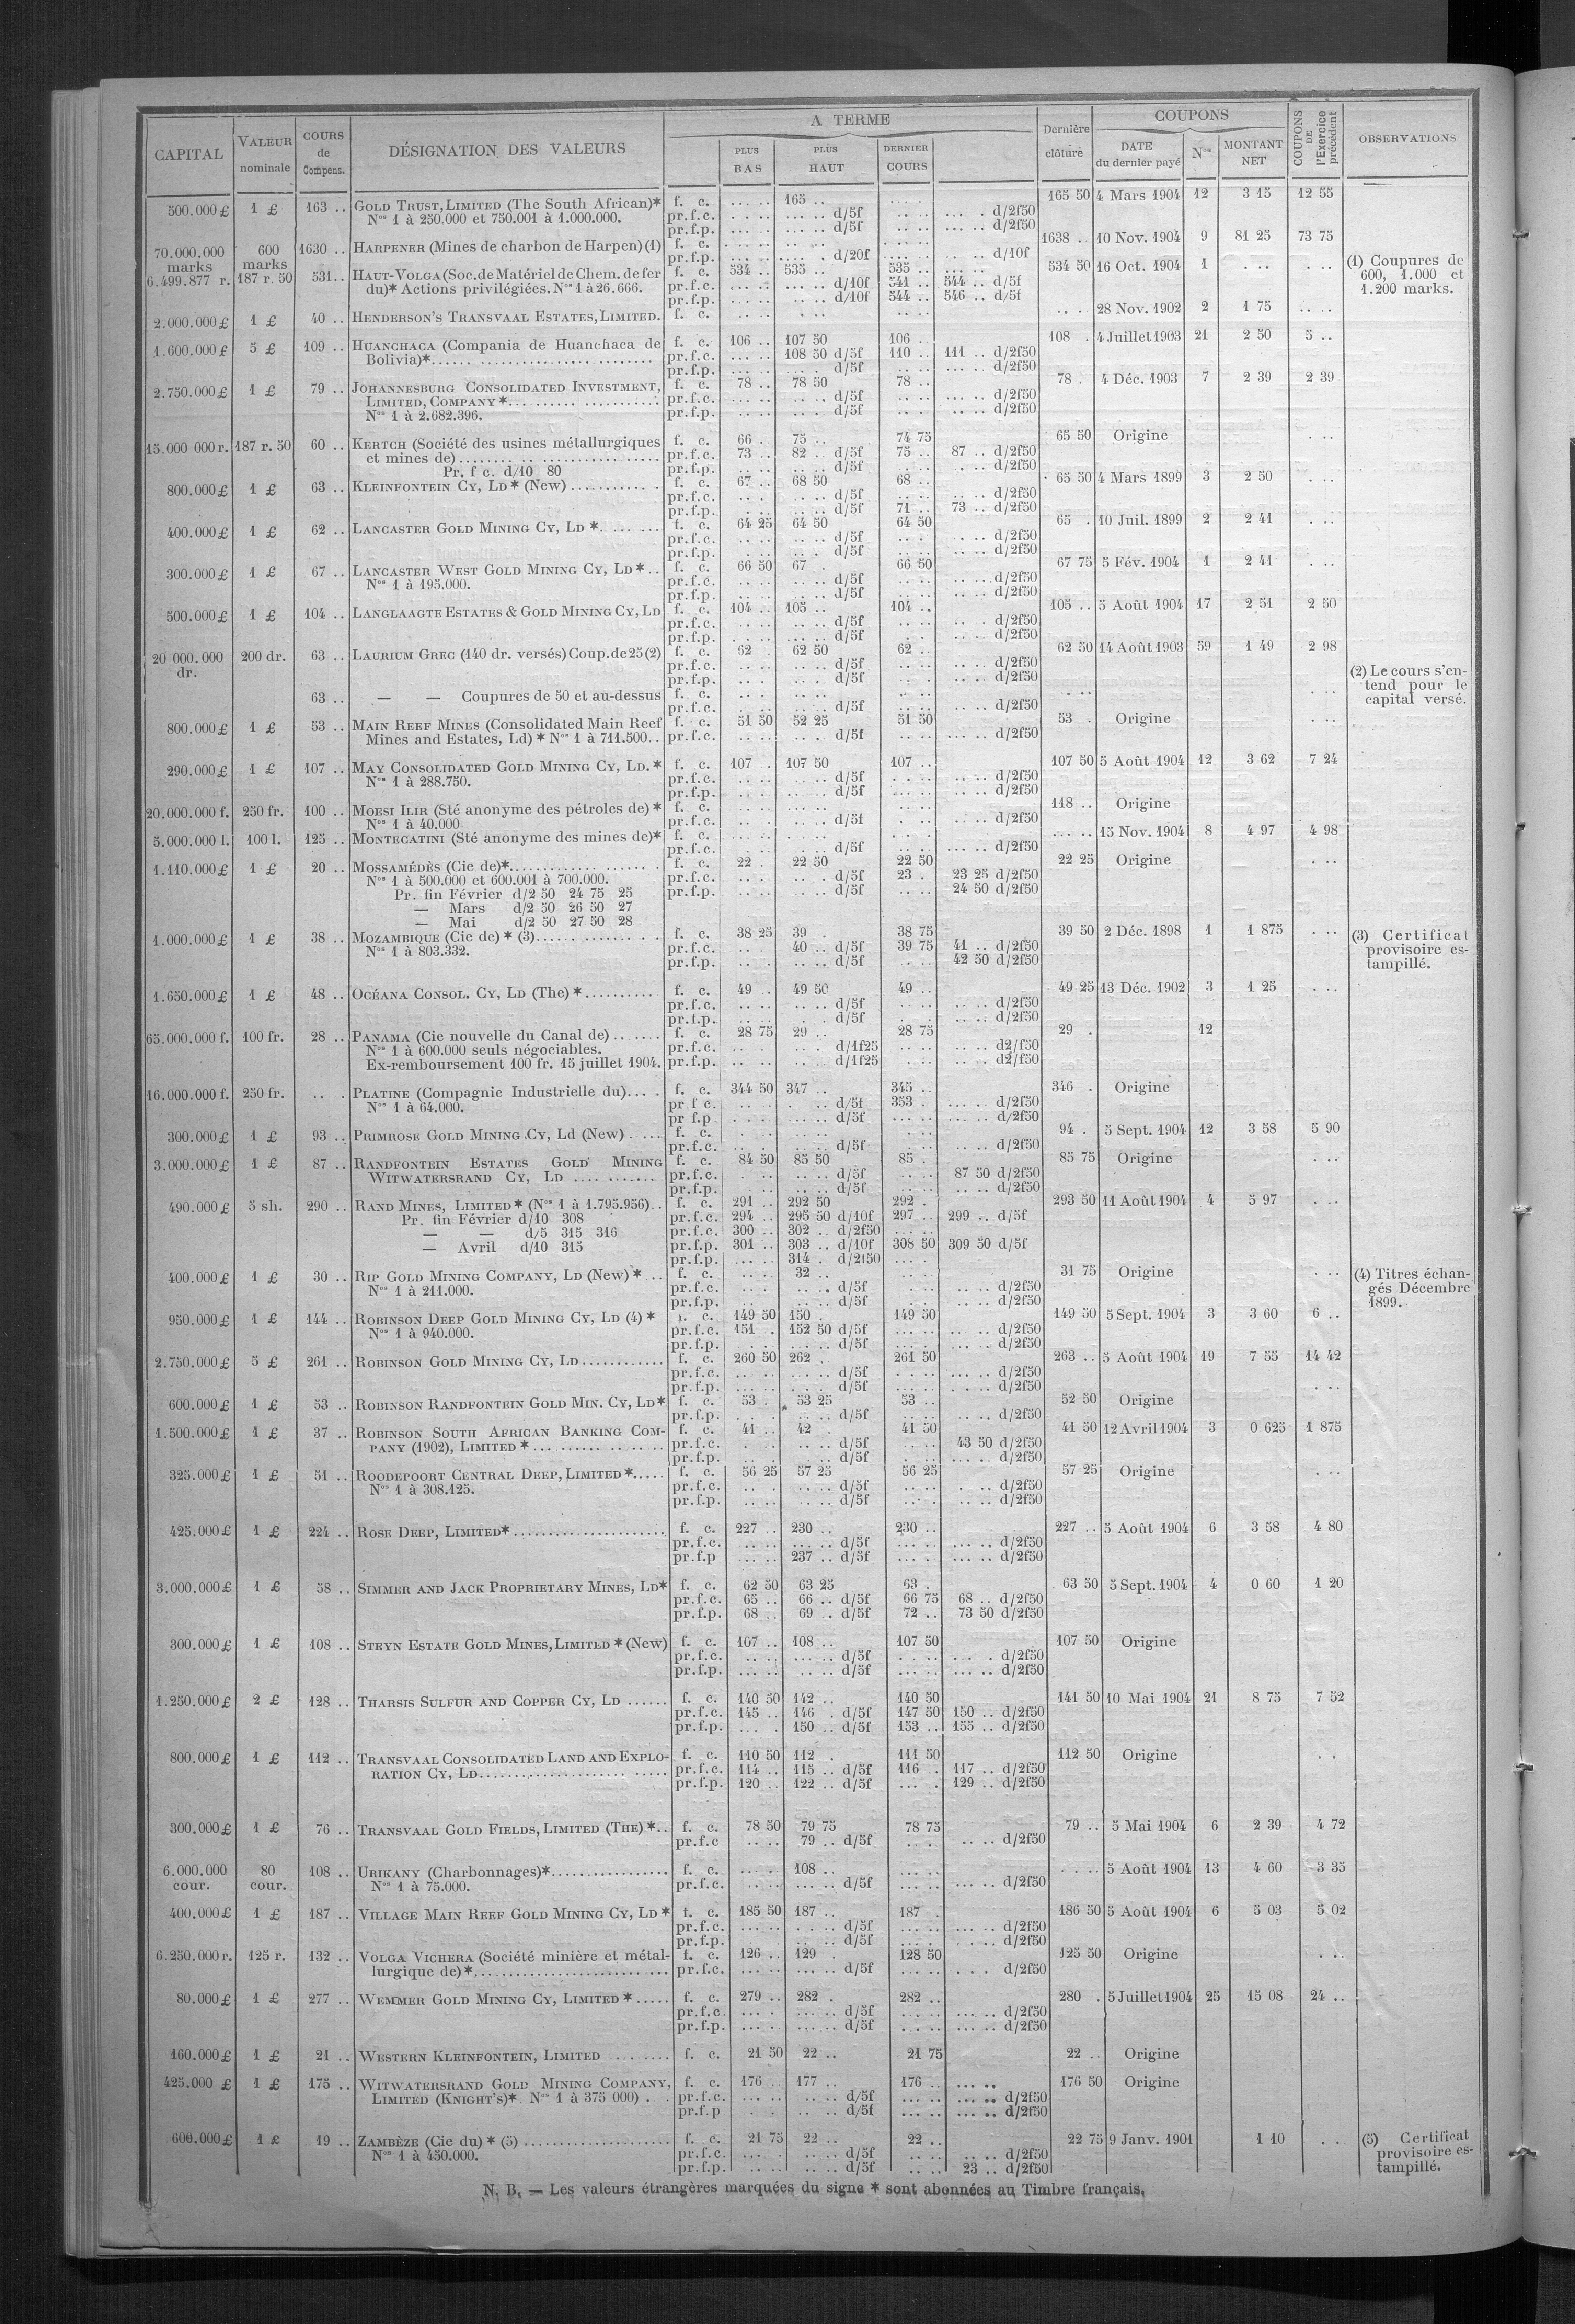 CAPITAL VALEUR nominale COURS de Compens. DÉSIGNATION DES VALEURS A TERME PLUS BAS PLUS HAUT DERNIER COURS Dernière clôture COUPONS DATE du dernier payé Nos MONTANT NET COUPONS DE l'Exercice précédent OBSERVATIONS
500.000£ 1 £ 163 .. GOLD TRUST, LIMITED (The South African)* f. c. 165 .. 165 50 4 Mars 1904 12 3 15 12 55
Nos 1 à 250.000 et 750.001 à 1.000.000. pr.f.c. d/5f d/2f50
pr.f.p. d/5f d/2f50
70.000.000 marks 600 marks 1630 .. HARPENER (Mines de charbon de Harpen) (1) f. c. 1638 .. 10 Nov. 1904 9 81 25 73 75
pr.f.p. d/20f d/10f
(1) Coupures de 600, 1.000 et 1.200 marks.
6.499.877 r. 187 r. 50 531.. HAUT-VOLGA (Soc. de Matériel de Chem. de fer f. c. 534 .. 535 .. 535 .. 534 50 16 Oct. 1904 1
du)* Actions privilégiées. Nos 1 à 26.666. pr.f.c. d/10f 541 .. 544 .. d/5f
pr.f.p. d/10f 544 .. 546 .. d/5f
2.000.000£ 1 £ 40 .. HENDERSON'S TRANSVAAL ESTATES, LIMITED. f. c. 28 Nov. 1902 2 1 75
1.600.000£ 5 £ 109 .. HUANCHACA (Compania de Huanchaca de f. c. 106 .. 107 50 106 . 108 . 4 Juillet 1903 21 2 50 5 ..
Bolivia)* pr.f.c. 108 50 d/5f 110 .. 111 .. d/2f50
pr.f.p. d/5f d/2f50
2.750.000£ 1 £ 79 .. JOHANNESBURG CONSOLIDATED INVESTMENT, f. c. 78 .. 78 50 78 .. 78 . 4 Déc. 1903 7 2 39 2 39
LIMITED, COMPANY* pr.f.c. d/5f d/2f50
Nos 1 à 2.682.396. pr.f.p. d/5f d/2f50
15.000 000 r. 187 r. 50 60 .. KERTCH (Société des usines métallurgiques f. c. 66 . 75 .. 74 75 65 50 Origine
et mines de) pr.f.c. 73 .. 82 . d/5f 75 .. 87 .. d/2f50
Pr. f c. d/10 80 pr.f.p. d/5f d/2f50
800.000£ 1 £ 63 .. KLEINFONTEIN CY, LD* (New) f. c. 67 .. 68 50 68 .. 65 50 4 Mars 1899 3 2 50
pr.f.c. d/5f d/2f50
pr.f.p. d/5f 71 .. 73 .. d/2f50
400.000£ 1 £ 62 .. LANCASTER GOLD MINING CY, LD * f. c. 64 25 64 50 64 50 65 . 10 Juil. 1899 2 2 41
pr.f.c. d/5f d/2f50
pr.f.p. d/5f d/2f50
300.000£ 1 £ 67 .. LANCASTER WEST GOLD MINING CY, LD* f. c. 66 50 67 . 66 50 67 75 5 Fév. 1904 1 2 41
Nos 1 à 195.000. pr.f.c. d/5f d/2f50
pr.f.p. d/5f d/2f50
500.000£ 1 £ 104 .. LANGLAAGTE ESTATES & GOLD MINING CY, LD f. c. 104 .. 105 .. 104 .. 105 .. 5 Août 1904 17 2 51 2 50
pr.f.c. d/5f d/2f50
pr.f.p. d/5f d/2f50
20 000.000 dr. 200 dr. 63 .. LAURIUM GREC (140 dr. versés) Coup. de 25 (2) f. c. 62 . 62 50 62 .. 62 50 14 Août 1903 59 1 49 2 98
pr.f.c. d/5f d/2f50
pr.f.p. d/5f d/2f50
(2) Le cours s'entend pour le capital versé.
63 .. — — Coupures de 50 et au-dessus f. c.
pr.f.c. d/5f d/2f50
800.000£ 1 £ 53 .. MAIN REEF MINES (Consolidated Main Reef f. c. 51 50 52 25 51 50 53 . Origine
Mines and Estates, Ld) * Nos 1 à 711.500.. pr.f.c. d/5f d/2f50
290.000£ 1 £ 107 .. MAY CONSOLIDATED GOLD MINING CY, LD. * f. c. 107 . 107 50 107 .. 107 50 5 Août 1904 12 3 62 7 24
Nos 1 à 288.750. pr.f.c. d/5f d/2f50
pr.f.p. d/5f d/2f50
20.000.000 f. 250 fr. 100 .. MOESI ILIR (Sté anonyme des pétroles de) * f. c. 118 .. Origine
Nos 1 à 40.000. pr.f.c. d/5f d/2f50
5.000.000 l. 100 l. 125 .. MONTECATINI (Sté anonyme des mines de)* f. c. 15 Nov. 1904 8 4 97 4 98
pr.f.c. d/5f d/2f50
1.110.000£ 1 £ 20 .. MOSSAMÉDÈS (Cie de)* f. c. 22 . 22 50 22 50 22 25 Origine
Nos 1 à 500.000 et 600.001 à 700.000. pr.f.c. d/5f 23 . 23 25 d/2f50
Pr. fin Février d/2 50 24 75 25 pr.f.p. d/5f 24 50 d/2f50
— Mars d/2 50 26 50 27
— Mai d/2 50 27 50 28
1.000.000£ 1 £ 38 .. MOZAMBIQUE (Cie de) * (3) f. c. 38 25 39 . 38 75 39 50 2 Déc. 1898 1 1 875
Nos 1 à 803.332. pr.f.c. 40 .. d/5f 39 75 41 .. d/2f50
pr.f.p. d/5f 42 50 d/2f50
(3) Certificat provisoire estampillé.
1.650.000£ 1 £ 48 .. OCÉANA CONSOL. CY, LD (The) * f. c. 49 . 49 50 49 .. 49 25 13 Déc. 1902 3 1 25
pr.f.c. d/5f d/2f50
pr.f.p. d/5f d/2f50
65.000.000 f. 100 fr. 28 .. PANAMA (Cie nouvelle du Canal de) f. c. 28 75 29 .. 28 75 29 . 12
Nos 1 à 600.000 seuls négociables. pr.f.c. d/1f25 d2/f50
Ex-remboursement 100 fr. 15 juillet 1904. pr.f.p. d/1f25 d2/f50
16.000.000 f. 250 fr. PLATINE (Compagnie Industrielle du) f. c. 344 50 347 .. 345 .. 346 . Origine
Nos 1 à 64.000. pr f c. d/5f 353 . d/2f50
pr f.p. d/5f d/2f50
300.000£ 1 £ 93 .. PRIMROSE GOLD MINING CY, Ld (New) f. c. 94 . 5 Sept. 1904 12 3 58 5 90
pr.f.c. d/5f d/2f50
3.000.000£ 1 £ 87 .. RANDFONTEIN ESTATES GOLD MINING f. c. 84 50 85 50 85 . 85 75 Origine
WITWATERSRAND CY, LD pr.f.c. d/5f 87 50 d/2f50
pr.f.p. d/5f d/2f50
490.000£ 5 sh. 290 .. RAND MINES, LIMITED* (Nos 1 à 1.795.956) f. c. 291 .. 292 50 292 . 293 50 11 Août 1904 4 5 97
Pr. fin Février d/10 308 pr.f.c. 294 .. 295 50 d/10f 297 .. 299 .. d/5f
— — d/5 315 316 pr.f.c. 300 .. 302 .. d/2f50
— Avril d/10 315 pr.f.p. 301 .. 303 .. d/10f 308 50 309 50 d/5f
pr.f.p. 314 . d/2f50
400.000£ 1 £ 30 .. RIP GOLD MINING COMPANY, LD (New) * f. c. 32 .. 31 75 Origine
Nos 1 à 211.000. pr.f.c. d/5f d/2f50
pr.f.p. d/5f d/2f50
(4) Titres échangés Décembre 1899.
950.000£ 1 £ 144 .. ROBINSON DEEP GOLD MINING CY, LD (4) * f. c. 149 50 150 . 149 50 149 50 5 Sept. 1904 3 3 60 6 ..
Nos 1 à 940.000. pr.f.c. 151 . 152 50 d/5f d/2f50
pr.f.p. d/5f d/2f50
2.750.000£ 5 £ 261 .. ROBINSON GOLD MINING CY, LD f. c. 260 50 262 . 261 50 263 .. 5 Août 1904 19 7 55 14 42
pr.f.c. d/5f d/2f50
pr.f.p. d/5f d/2f50
600.000£ 1 £ 53 .. ROBINSON RANDFONTEIN GOLD MIN. CY, LD* f. c. 53 . 53 25 53 .. 52 50 Origine
pr.f.p. d/5f d/2f50
1.500.000£ 1 £ 37 .. ROBINSON SOUTH AFRICAN BANKING COM- f. c. 41 .. 42 . 41 50 41 50 12 Avril 1904 3 0 625 1 875
PANY (1902), LIMITED * pr.f.c. d/5f 43 50 d/2f50
pr.f.p. d/5f d/2f50
325.000£ 1 £ 51 .. ROODEPOORT CENTRAL DEEP, LIMITED* f. c. 56 25 57 25 56 25 57 25 Origine
Nos 1 à 308.125. pr.f.c. d/5f d/2f50
pr.f.p. d/5f d/2f50
425.000£ 1 £ 224 .. ROSE DEEP, LIMITED* f. c. 227 .. 230 .. 230 .. 227 .. 5 Août 1904 6 3 58 4 80
pr.f.c. d/5f d/2f50
pr.f.p 237 .. d/5f d/2f50
3.000.000£ 1 £ 58 .. SIMMER AND JACK PROPRIETARY MINES, LD* f. c. 62 50 63 25 63 . 63 50 5 Sept. 1904 4 0 60 1 20
pr.f.c. 65 .. 66 .. d/5f 66 75 68 .. d/2f50
pr.f.p. 68 .. 69 . d/5f 72 .. 73 50 d/2f50
300.000£ 1 £ 108 .. STEYN ESTATE GOLD MINES, LIMITED * (New) f. c. 107 .. 108 .. 107 50 107 50 Origine
pr.f.c. d/5f d/2f50
pr.f.p. d/5f d/2f50
1.250.000£ 2 £ 128 .. THARSIS SULFUR AND COPPER CY, LD f. c. 140 50 142 .. 140 50 141 50 10 Mai 1904 21 8 75 7 52
pr.f.c. 145 .. 146 . d/5f 147 50 150 .. d/2f50
pr.f.p. 150 .. d/5f 153 .. 155 .. d/2f50
800.000£ 1 £ 112 .. TRANSVAAL CONSOLIDATED LAND AND EXPLO- f. c. 110 50 112 . 111 50 112 50 Origine
RATION CY, LD pr.f.c. 114 .. 115 .. d/5f 116 . 117 .. d/2f50
pr.f.p. 120 .. 122 .. d/5f 129 .. d/2f50
300.000£ 1 £ 76 .. TRANSVAAL GOLD FIELDS, LIMITED (THE) * f. c. 78 50 79 75 78 75 79 .. 5 Mai 1904 6 2 39 4 72
pr.f.c 79 .. d/5f d/2f50
6.000.000 cour. 80 cour. 108 .. URIKANY (Charbonnages)* f. c. 108 .. 5 Août 1904 13 4 60 3 35
Nos 1 à 75.000. pr.f.c. d/5f d/2f50
400.000£ 1 £ 187 .. VILLAGE MAIN REEF GOLD MINING CY, LD * f. c. 185 50 187 .. 187 . 186 50 5 Août 1904 6 5 03 5 02
pr.f.c. d/5f d/2f50
pr.f.p. d/5f d/2f50
6.250.000 r. 125 r. 132 .. VOLGA VICHERA (Société minière et métal- f. c. 126 .. 129 . 128 50 125 50 Origine
lurgique de) * pr.f.c. d/5f d/2f50
80.000£ 1 £ 277 .. WEMMER GOLD MINING CY, LIMITED * f. c. 279 .. 282 . 282 .. 280 . 5 Juillet 1904 25 15 08 24 ..
pr.f.c. d/5f d/2f50
pr.f.p. d/5f d/2f50
160.000£ 1 £ 21 .. WESTERN KLEINFONTEIN, LIMITED f. c. 21 50 22 .. 21 75 22 .. Origine
425.000 £ 1 £ 175 .. WITWATERSRAND GOLD MINING COMPANY, f. c. 176 .. 177 .. 176 .. 176 50 Origine
LIMITED (KNIGHT'S)* Nos 1 à 375 000) pr.f.c. d/5f d/2f50
pr.f.p d/5f d/2f50
600.000£ 1 £ 19 .. ZAMBÈZE (Cie du) * (5) f. c. 21 75 22 .. 22 .. 22 75 9 Janv. 1901 1 10
Nos 1 à 450.000. pr.f.c. d/5f d/2f50
pr.f.p. d/5f 23 .. d/2f50
(5) Certificat provisoire estampillé.
N. B. — Les valeurs étrangères marquées du signe * sont abonnées au Timbre français.